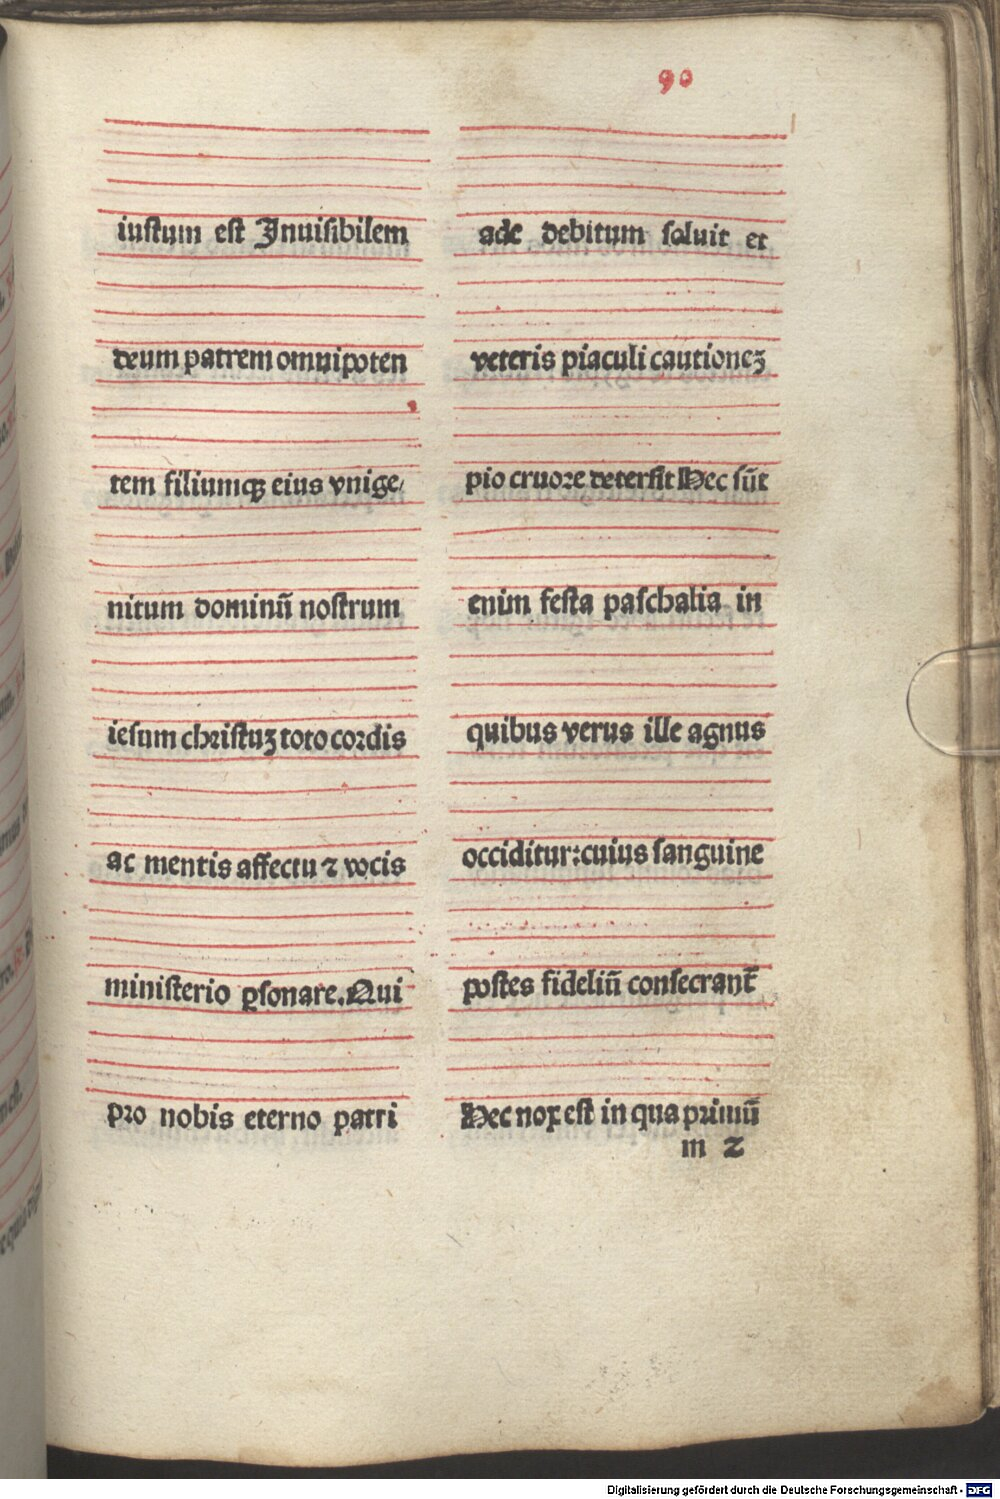 90
iustum est Inuisibilem
deum patrem omnipoten
tem filiumqꝫ eius vnige/
nitum dominū nostrum
iesum christuꝫ toto cordis
ac mentis affectu ⁊ vocis
ministerio ꝑsonare. Qui
pro nobis eterno patri
ade debitum soluit et
veteris piaculi cautioneꝫ
pio cruore detersit Hec sūt
enim festa paschalia in
quibus verus ille agnus
occiditur: cuius sanguine
postes fideliū consecrant̄
Hec nox est in qua primū
m 2
Digitalisierung gefördert durch die Deutsche Forschungsgemeinschaft - DFG